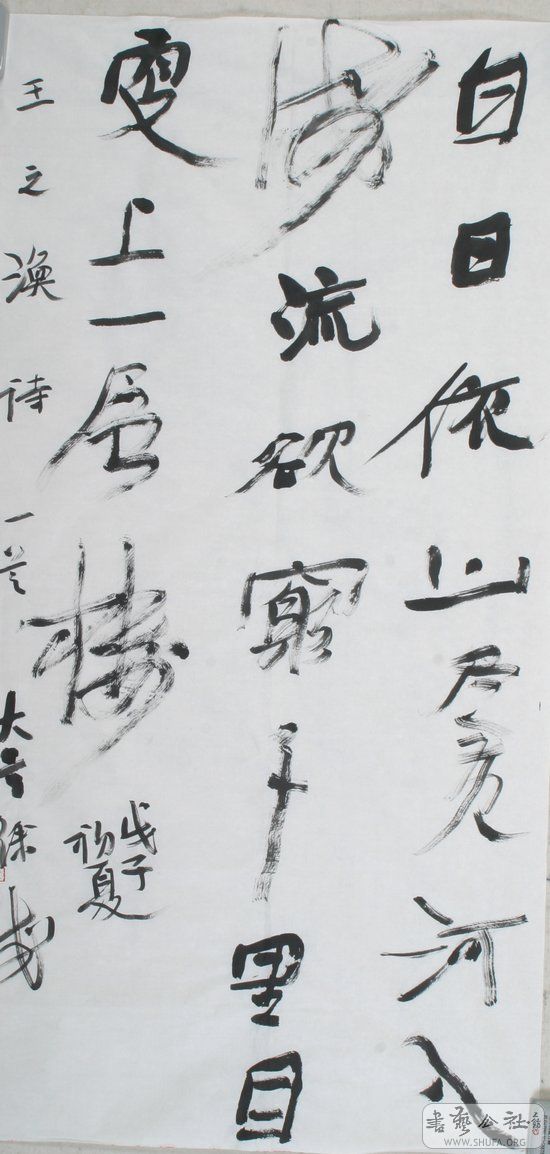 白日依山尽黄河入
海流欲窮千里目
更上一層樓
戊子
初夏
王之涣诗一首
書藝公社
WWW.SHUFA.ORG